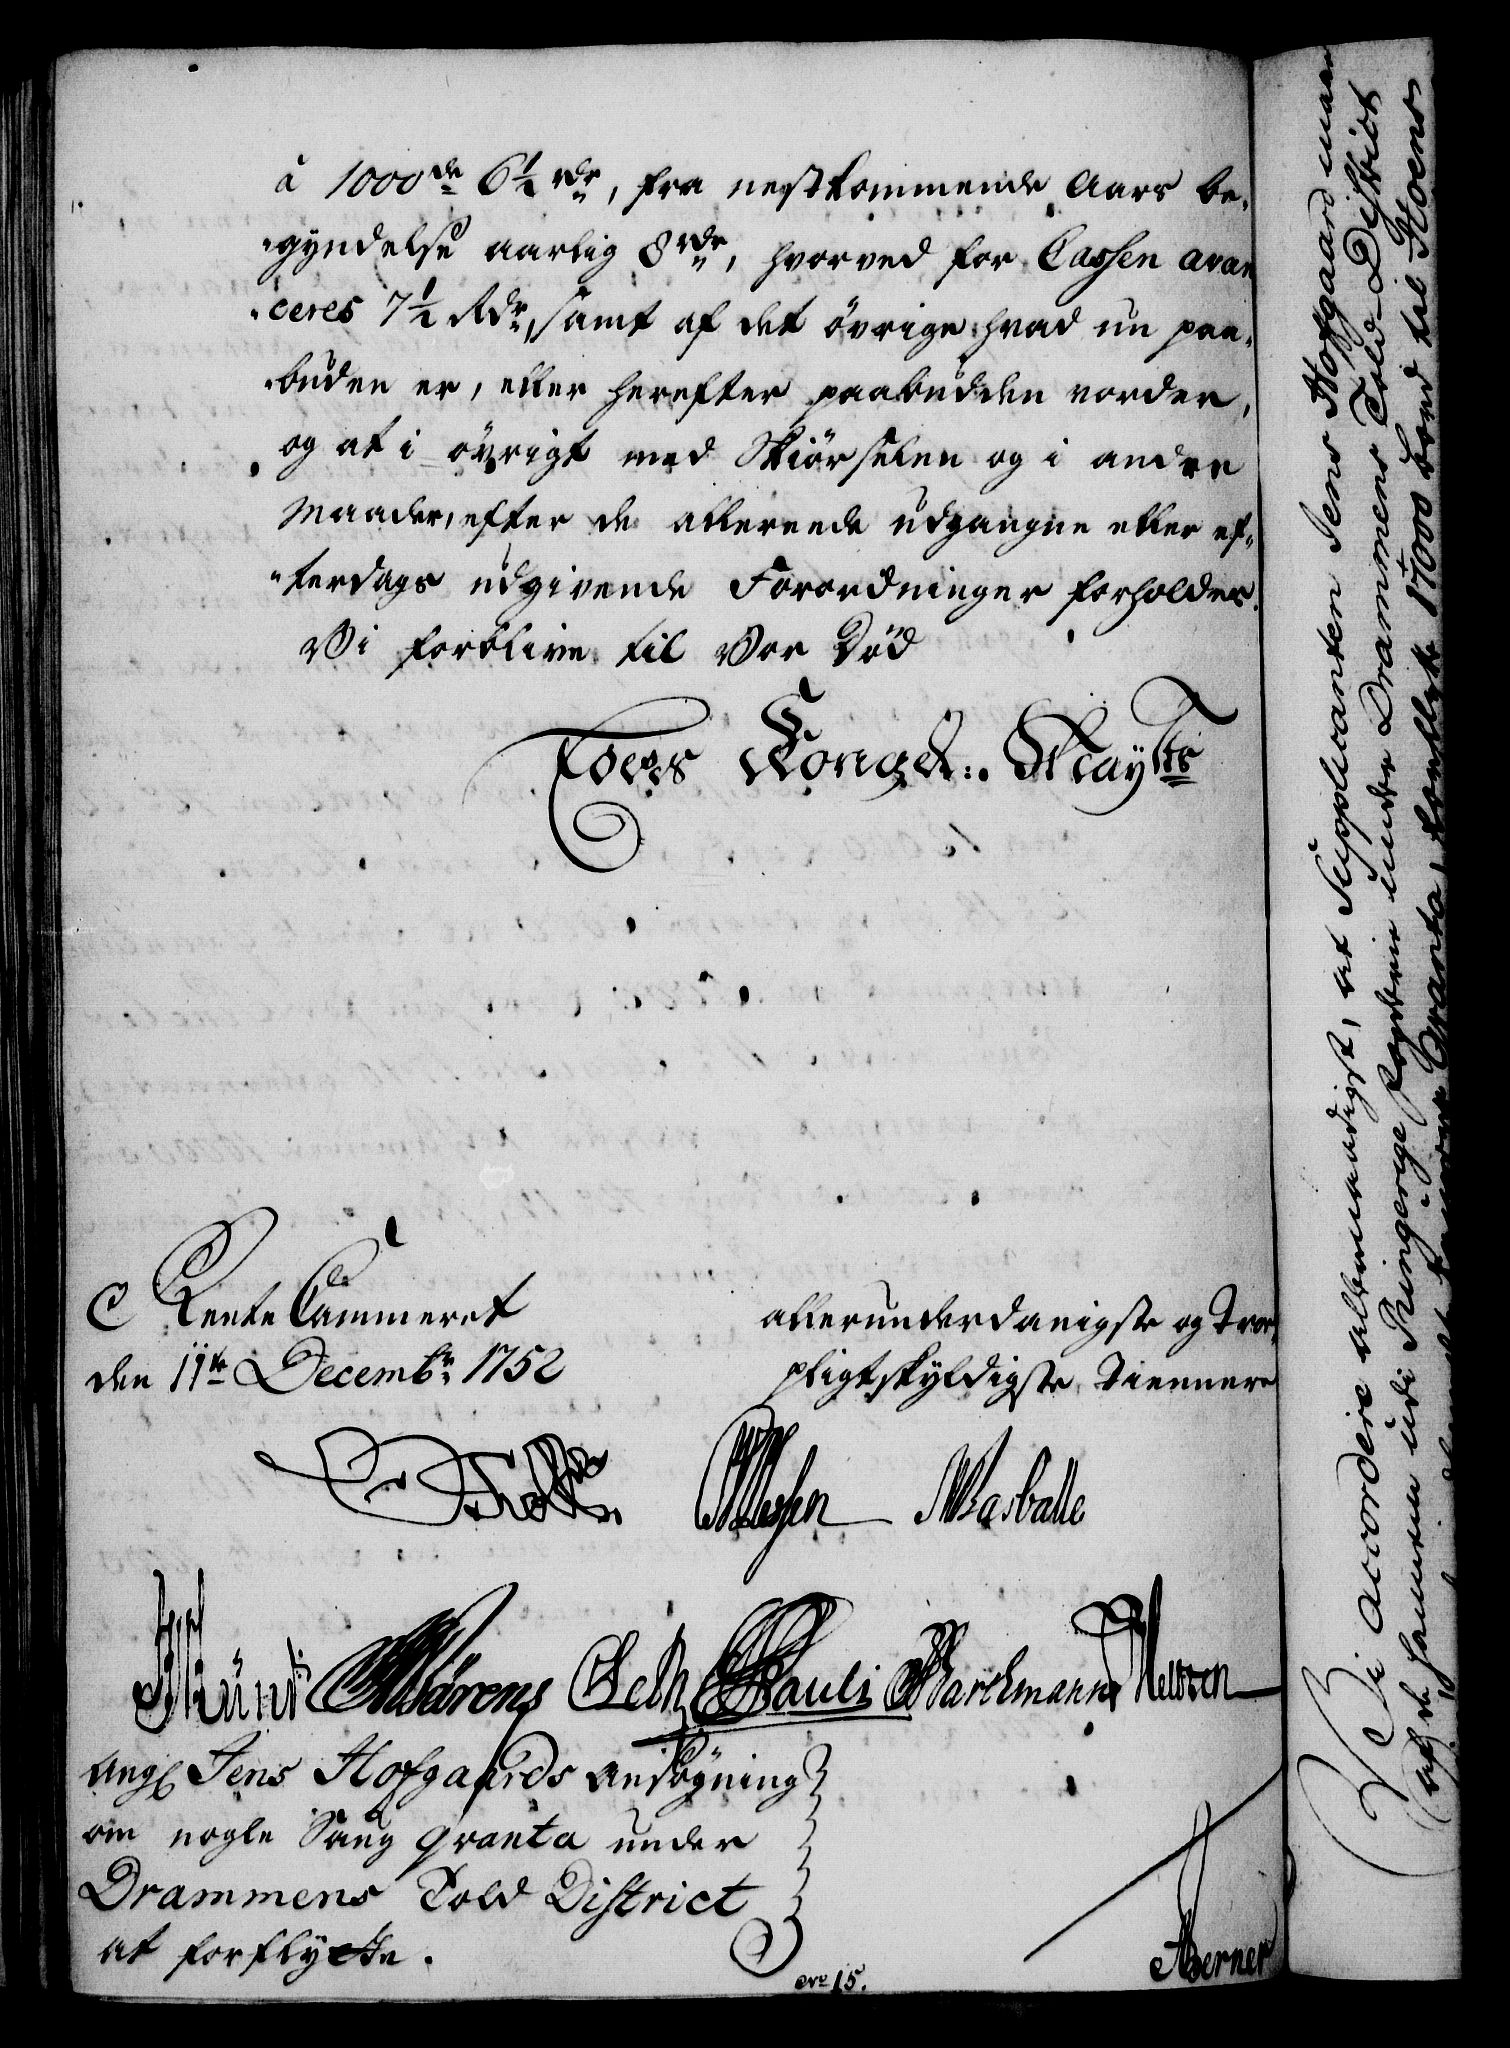 à 1000de 6½ rdr, fra nestkommende Aars be-
gyndelse aarlig 8 rdr, hvorved for Cassen avan
ceres 7½ Rdr, samt af det övrige hvad nu paa-
buden er, eller herefter paabudden vorder,
og at i övrigt med Skiörselen og i andre
Maader, efter de allereede udgangne eller ef-
terdags udgivende Forordninger forholdes.
Vi forblive til Vor Död
Eders Kongel: Mayts
Rente Cammeret
den 11te Decembr 1752
allerunderdanigste og Troe
pligtskyldigste Tiennere
Wessen Rasballe
Leth Pauli Barchmann Neltzen
Ang Jens Hofgaards Ansøgning
om nogle Saug qvanta under
Drammens Told District
at forflytte.
No 15.
Berner
Vi accordere allernaadigst, at Supplicanten Jens Hofgaard maae
udi Ringerige Fogderie under Drammens Told-District
qvanta, forflytte 17000 bord til Hoens